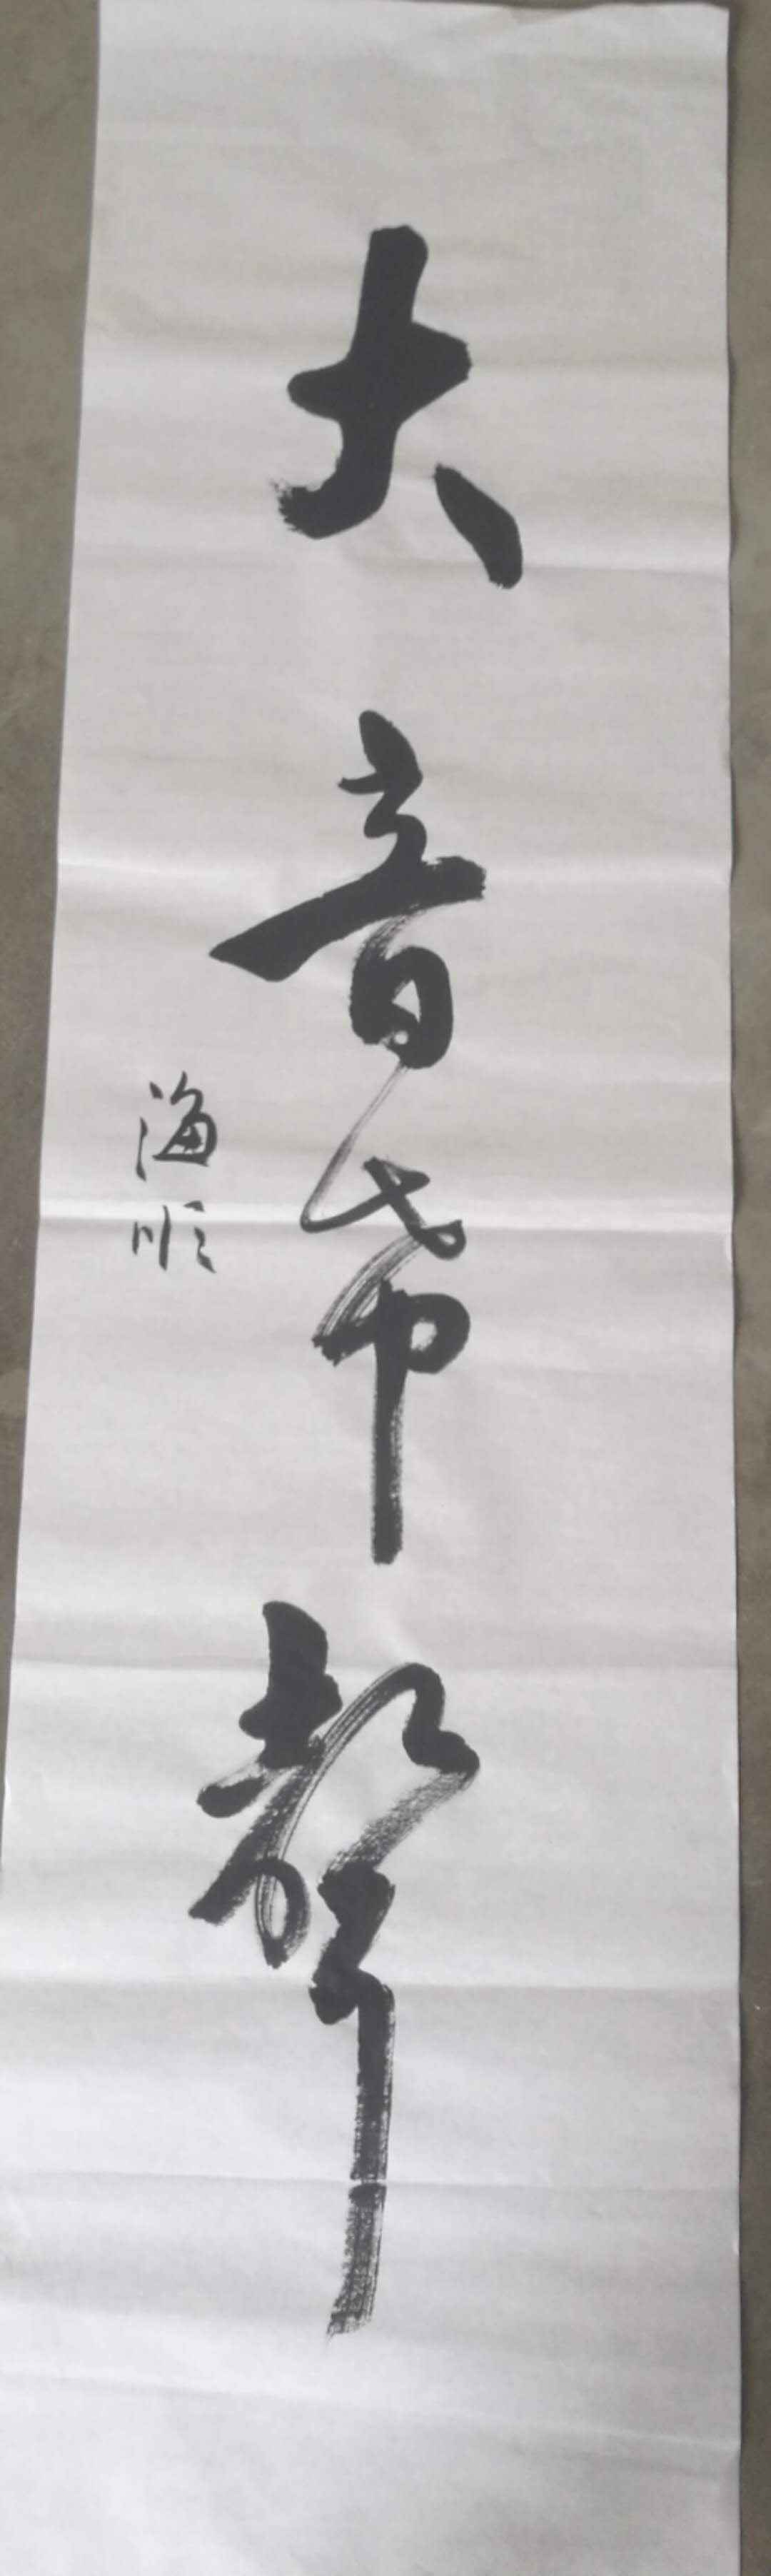 大音希聲
海順